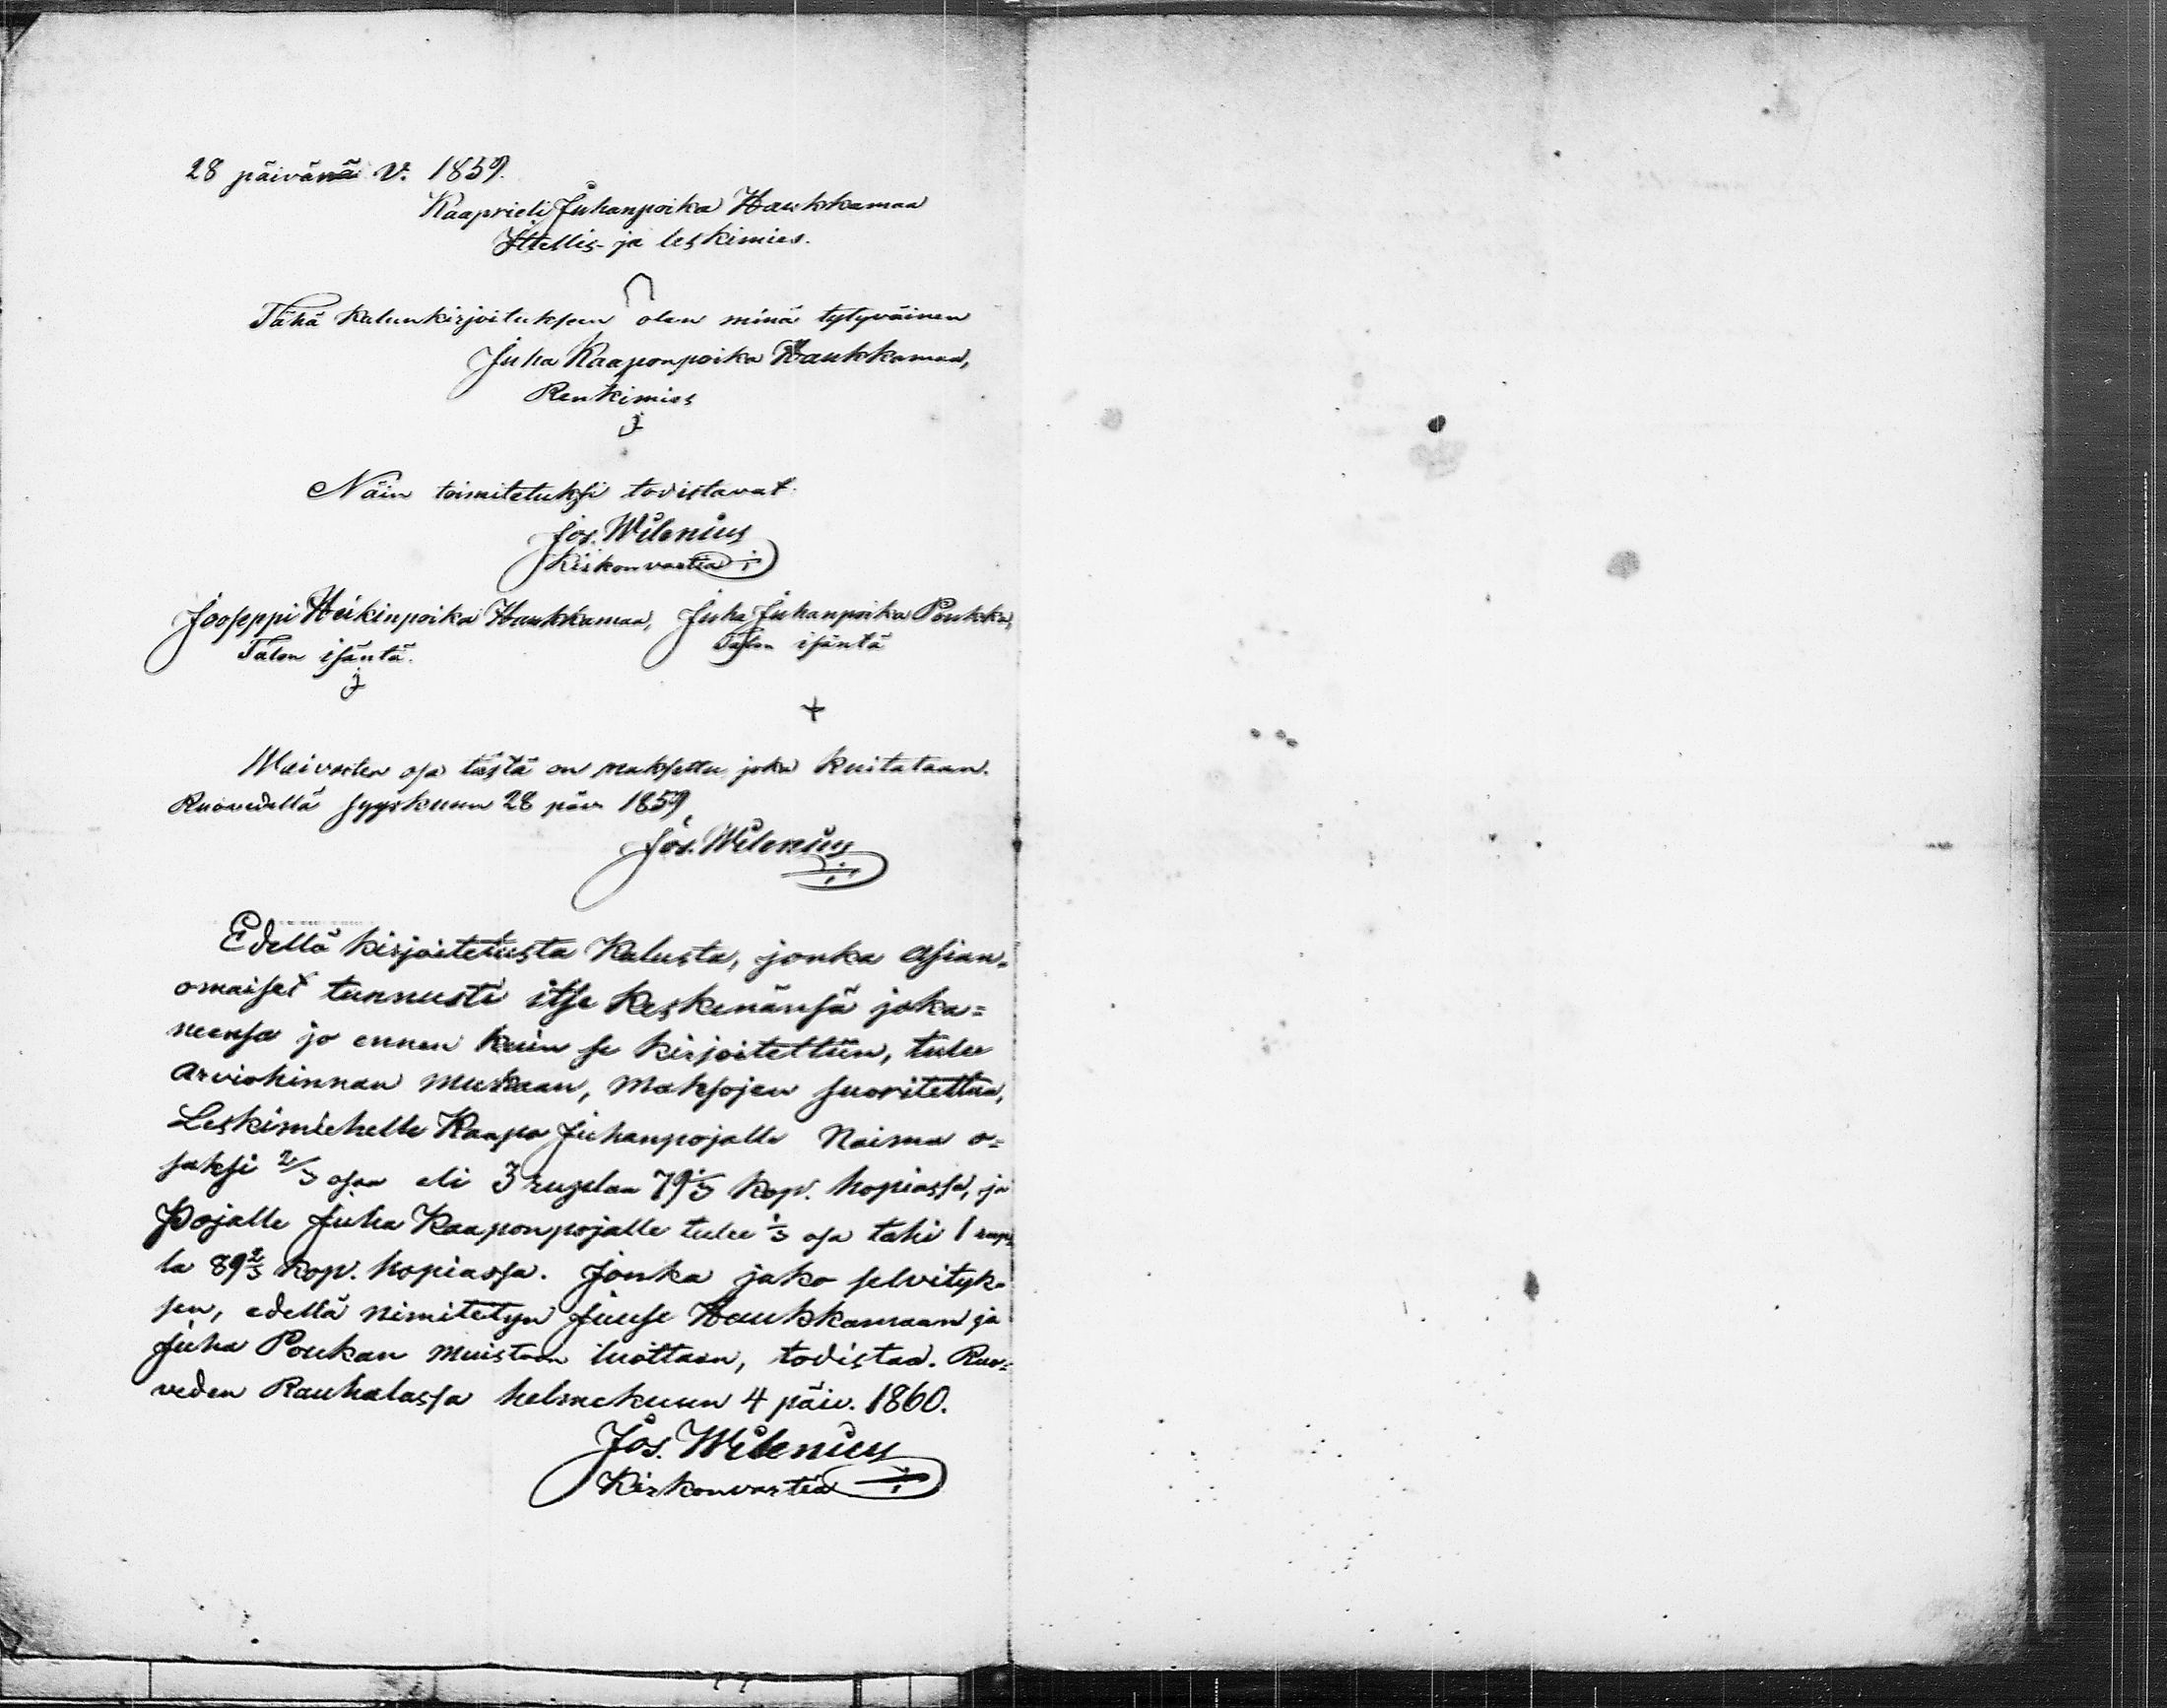 28 päivänä v. 1859.
Kaaprieli Juhanpoika Haukkamaa
Ittellis- ja leskimies.
Tähä kalunkirjoitukseen olen minä tytyväinen
Juha Kaaponpoika Haukkamaa,
Renkimies
Näin toimitetuksi todistavat.
Jos. Wilenius
Kirkonvartia
Jooseppi Heikinpoika Haukkamaa, Juha Juhanpoika Poukka,
Talon isäntä. Talon isäntä
Waivasten osa tästä on maksettu joka kuitataan.
Ruovedellä syyskuun 28 päiv 1859,
Jos. Wilenius
Edellä kirjoitetusta Kalusta, jonka asian-
omaiset tunnusti itse keskenänsä joka=
neensa jo ennen kuin se kirjoitettiin, tulee
arviohinnan mukaan, maksojen suoritettua,
Leskimiehelle Kaapo Juhanpojalle Naima o=
saksi 2/3 osaa eli 3 ruplaa 79 1/3 kop. hopiassa, ja
Pojalle Juha Kaaponpojalle tulee 1/3 osa tahi 1 rup=
la 89 2/3 kop. hopiassa. Jonka jako selvityk-
sen, edellä nimitetyn Juuse Haukkamaan ja
Juha Poukan muistoon luottaen, todistaa. Ruo=
veden Rauhalassa helmekuun 4 päiv. 1860.
Jos. Wilenius
Kirkonvartia